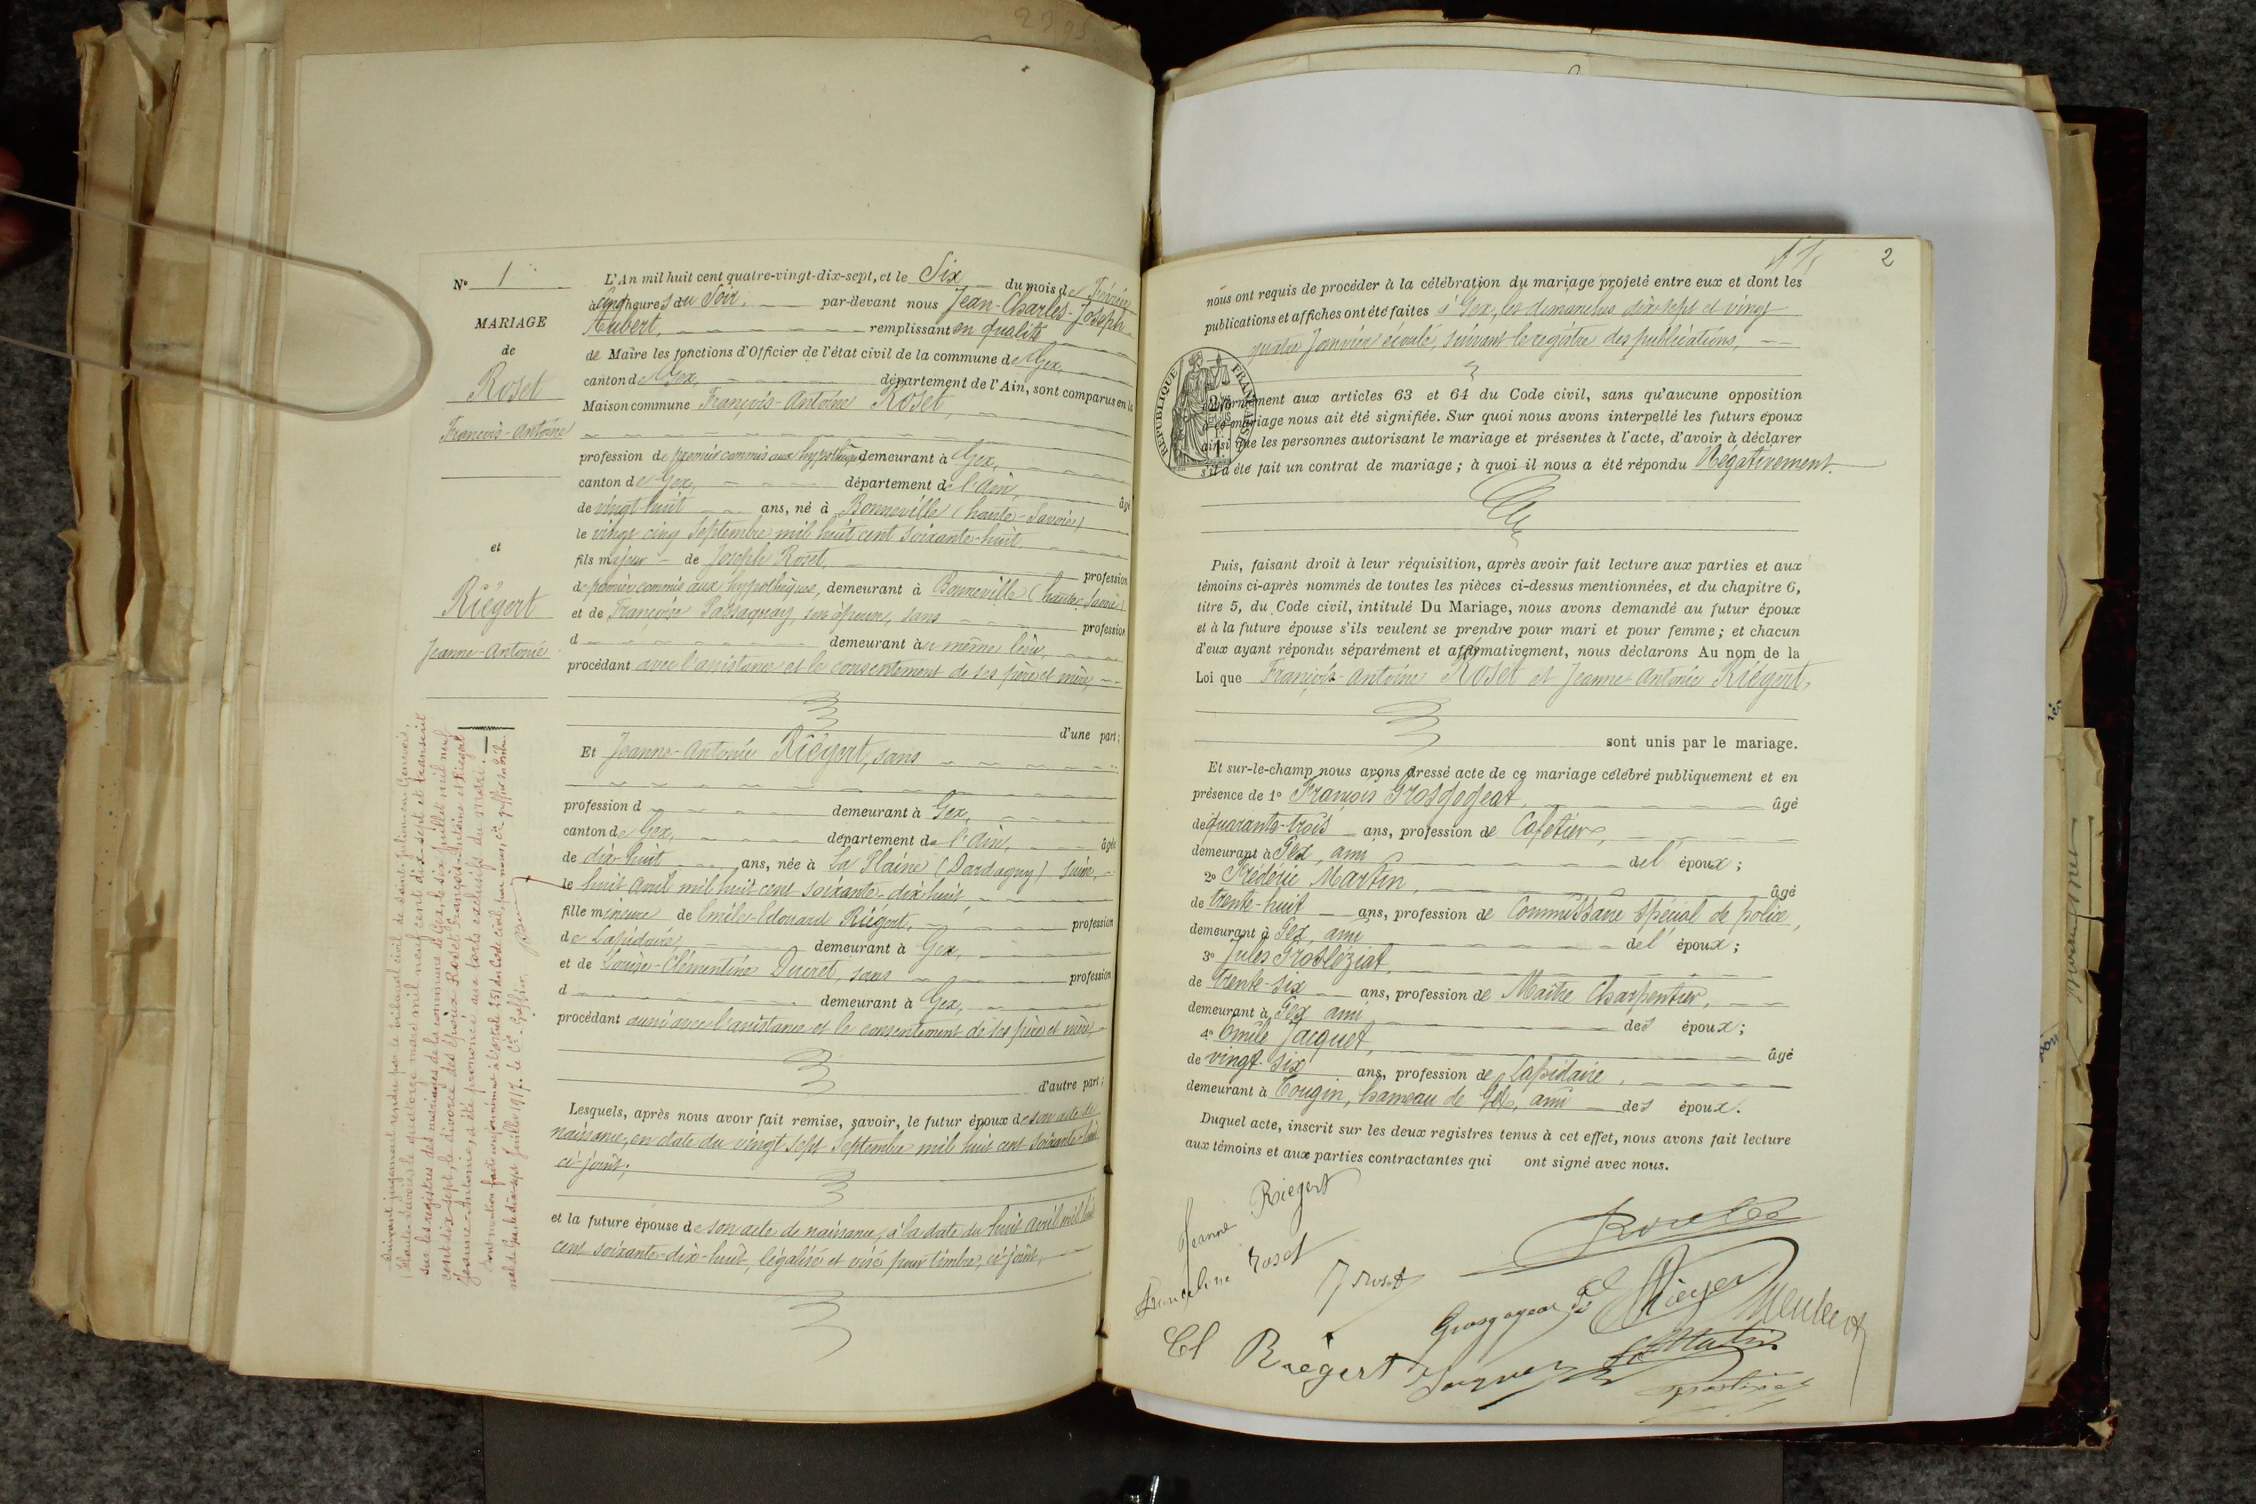 N° 1
MARIAGE
de
Roset
François-Antoine
et
Riégert
Jeanne-Antonie
L'An mil huit cent quatre-vingt-dix-sept, et le Six du mois de Février
à cinq heures du Soir, par-devant nous Jean-Charles-Joseph
Aubert, remplissant en qualité
de Maire les fonctions d'Officier de l'état civil de la commune de Gex,
canton de Gex, département de l'Ain, sont comparus en la
Maison commune François-Antoine Roset,
profession de premier commis aux hypothèques demeurant à Gex,
canton de Gex, département de l'Ain, âgé
de vingt-huit ans, né à Bonneville (haute-Savoie)
le vingt cinq Septembre mil huit cent soixante-huit
fils majeur de Joseph Roset, profession
de premier commis aux hypothèques, demeurant à Bonneville (haute Savoie)
et de Françoise son épouse, sans profession
d demeurant au même lieu,
procédant avec l'assistance et le consentement de ses père et mère,
d'une part;
Et Jeanne-Antonie Riégert, sans
profession d demeurant à Gex,
canton de Gex, département de l'Ain, âgée
de dix-huit ans, née à La Plaine (Dardagny) Suisse,
le huit avril mil huit cent soixante-dix huit,
fille mineure de Emile-Edouard Riégert, profession
de Lapidaire, demeurant à Gex,
et de Louise-Clémentine Ducret, sans profession
d demeurant à Gex,
procédant aussi avec l'assistance et le consentement de ses père et mère,
d'autre part;
Lesquels, après nous avoir fait remise, savoir, le futur époux de son acte de
naissance, en date du vingt sept Septembre mil huit cent soixante-huit
ci-joint;
et la future épouse de son acte de naissance, à la date du huit avril mil huit
cent soixante-dix-huit, légalisé et visé pour timbre, ci-joint,
Suivant jugement rendu par le tribunal civil de Saint-Julien-en-Genevois,
(Haute-Savoie) le quatorze mars mil neuf cent dix-sept et transcrit
sur les registres des mariages de la commune de Gex, le six Juillet mil neuf
cent dix-sept, le divorce des époux Roset François-Antoine et Riegert
Jeanne-Antonie, a été prononcé aux torts exclusifs du mari.
Dont mention faite conformément à l'article 251 du Code civil, par nous, greffier du tribu-
nal de Gex le dix-sept Juillet 1917. Le Greffier.
2
nous ont requis de procéder à la célébration du mariage projeté entre eux et dont les
publications et affiches ont été faites à Gex, les dimanches dix-sept et vingt
quatre Janvier écoulé, suivant le registre des publications,
RÉPUBLIQUE FRANÇAISE
conformément aux articles 63 et 64 du Code civil, sans qu'aucune opposition
à ce mariage nous ait été signifiée. Sur quoi nous avons interpellé les futurs époux
ainsi que les personnes autorisant le mariage et présentes à l'acte, d'avoir à déclarer
s'il a été fait un contrat de mariage; à quoi il nous a été répondu Négativement.
Puis, faisant droit à leur réquisition, après avoir fait lecture aux parties et aux
témoins ci-après nommés de toutes les pièces ci-dessus mentionnées, et du chapitre 6,
titre 5, du Code civil, intitulé Du Mariage, nous avons demandé au futur époux
et à la future épouse s'ils veulent se prendre pour mari et pour femme; et chacun
d'eux ayant répondu séparément et affirmativement, nous déclarons Au nom de la
Loi que François-Antoine Roset et Jeanne Antonie Riégert,
sont unis par le mariage.
Et sur-le-champ nous avons dressé acte de ce mariage célébré publiquement et en
présence de 1° François Grosgogeat, âgé
de quarante-trois ans, profession de Cafetier,
demeurant à Gex, ami de l'époux;
2° Frédéric Martin, âgé
de trente-huit ans, profession de Commissaire spécial de police,
demeurant à Gex, ami de l'époux;
3° Jules
de trente-six ans, profession de Maître Charpentier,
demeurant à Gex ami des époux;
4° Emile Jacquet, âgé
de vingt-six ans, profession de Lapidaire,
demeurant à Tougin, hameau de Gex, ami des époux.
Duquel acte, inscrit sur les deux registres tenus à cet effet, nous avons fait lecture
aux témoins et aux parties contractantes qui ont signé avec nous.
Jeanne Riegert
Roset
J Roset
Cl Riégert